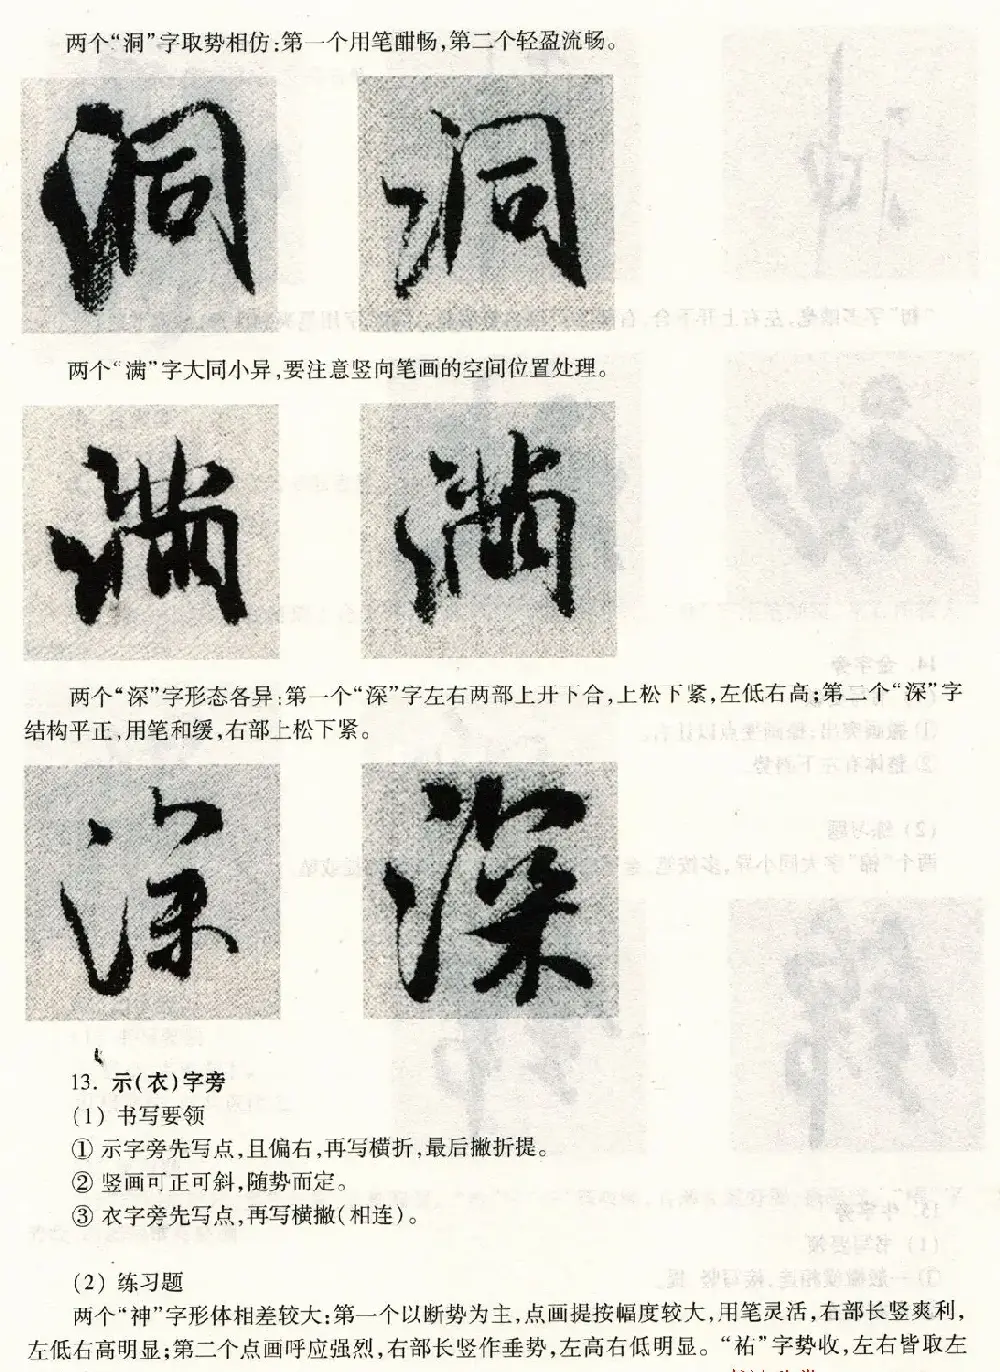 两个“洞”字取势相仿:第一个用笔酣畅,第二个轻盈流畅。
洞 洞
两个“满”字大同小异,要注意竖向笔画的空间位置处理。
满 满
两个“深”字形态各异:第一个“深”字左右两部上开下合,上松下紧,左低右高;第二个“深”字
结构平正,用笔和缓,右部上松下紧。
深 深
13. 示(衣)字旁
(1) 书写要领
① 示字旁先写点,且偏右,再写横折,最后撇折提。
② 竖画可正可斜,随势而定。
③ 衣字旁先写点,再写横撇(相连)。
(2) 练习题
两个“神”字形体相差较大:第一个以断势为主,点画提按幅度较大,用笔灵活,右部长竖爽利,
左低右高明显;第二个点画呼应强烈,右部长竖作垂势,左高右低明显。“祐”字势收,左右皆取左